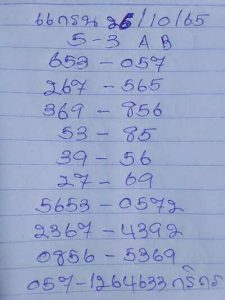 แตกรน 26/10/65
5-3 A B
653-057
267-565
369-856
53-85
39-56
27-69
5653-0572
2367-4392
0856-5369
057-1264633